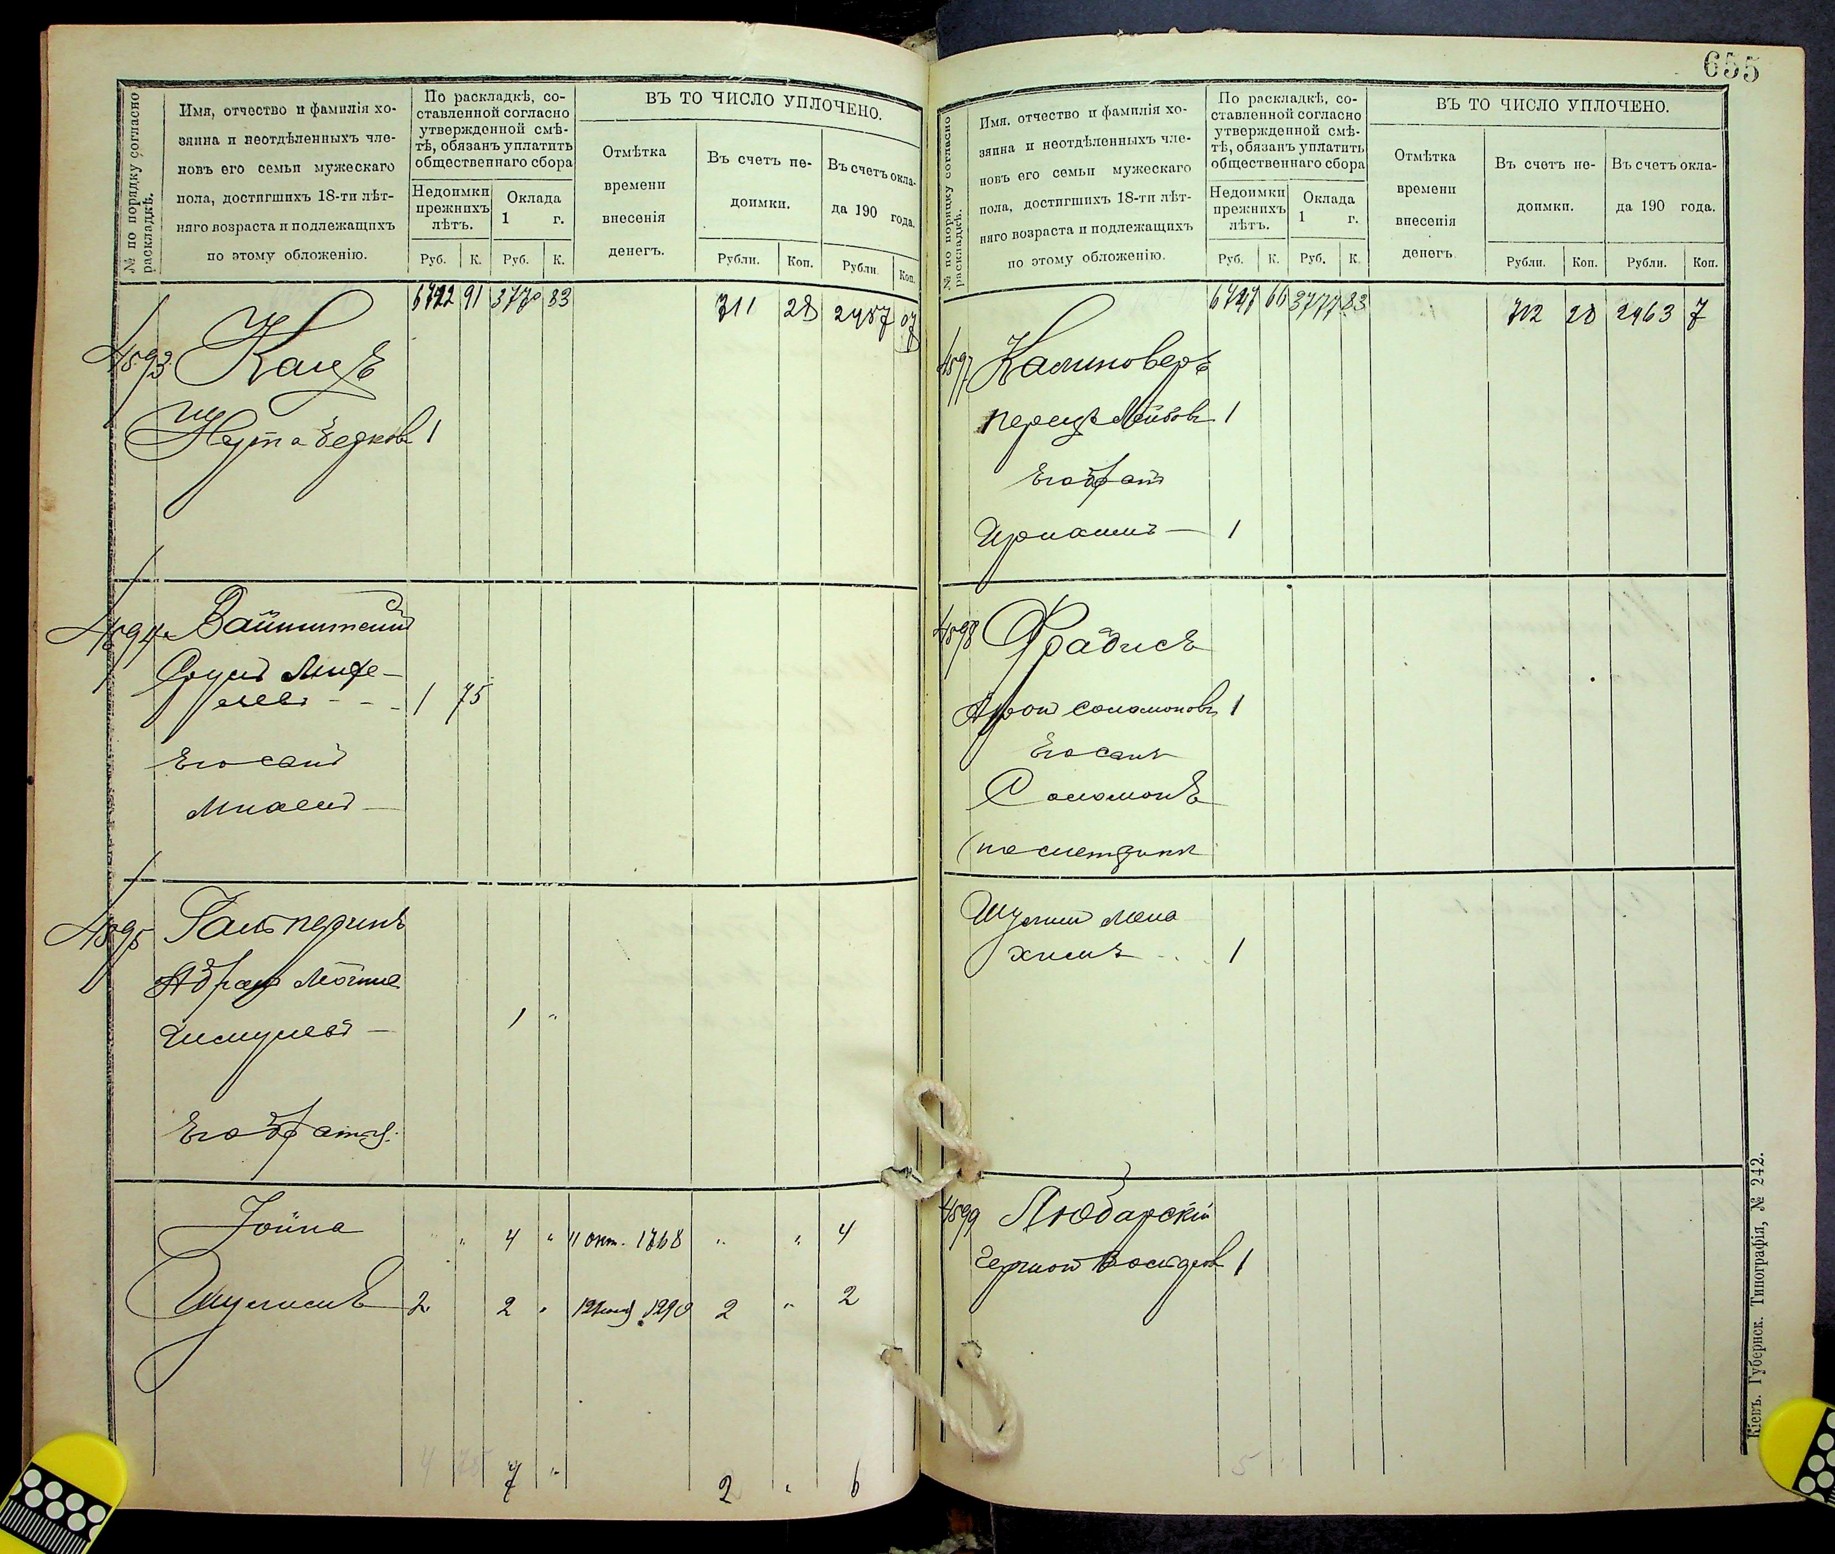 № по порядку согласно раскладкѣ.
Имя, отчество и фамилія хо-
зяина и неотдѣленныхъ чле-
новъ его семьи мужескаго
пола, достигшихъ 18-ти лѣт-
няго возраста и подлежащихъ
по этому обложенію.
По раскладкѣ, со-
ставленной согласно
утвержденной смѣ-
тѣ, обязанъ уплатить
общественнаго сбора
Недоимки
прежнихъ
лѣтъ.
Оклада
1 г.
Руб. К. Руб. К.
ВЪ ТО ЧИСЛО УПЛОЧЕНО.
Отмѣтка
времени
внесенія
денегъ.
Въ счетъ не-
доимки.
Въ счетъ окла-
да 190 года.
Рубли. Коп. Рубли. Коп.
91 83 711 28 2957 07
4593 Кацъ
1
4594
1 75
Его сынъ
4595 Гальперинъ
Абрамъ
1 "
Его братья:
Іойна " " 4 " 11 окт. 1868 " " 4
Шулимъ 2 2 " 2 " 2
7 " 2 " 6
655
№ по порядку согласно раскладкѣ.
Имя, отчество и фамилія хо-
зяина и неотдѣленныхъ чле-
новъ его семьи мужескаго
пола, достигшихъ 18-ти лѣт-
няго возраста и подлежащихъ
по этому обложенію.
По раскладкѣ, со-
ставленной согласно
утвержденной смѣ-
тѣ, обязанъ уплатить
общественнаго сбора
Недоимки
прежнихъ
лѣтъ.
Оклада
1 г.
Руб. К. Руб. К.
ВЪ ТО ЧИСЛО УПЛОЧЕНО.
Отмѣтка
времени
внесенія
денегъ.
Въ счетъ не-
доимки.
Въ счетъ окла-
да 190 года.
Рубли. Коп. Рубли. Коп.
66 3777 83 712 28 2963 7
4597
Перецъ Лейбовъ 1
Его братъ
1
4598 Фрадисъ
Аронъ Соломоновъ 1
Его сынъ
Соломонъ
Шулимъ Мена
химъ 1
4599 Любарскій
1
Кіевъ. Губернск. Типографія, № 242.